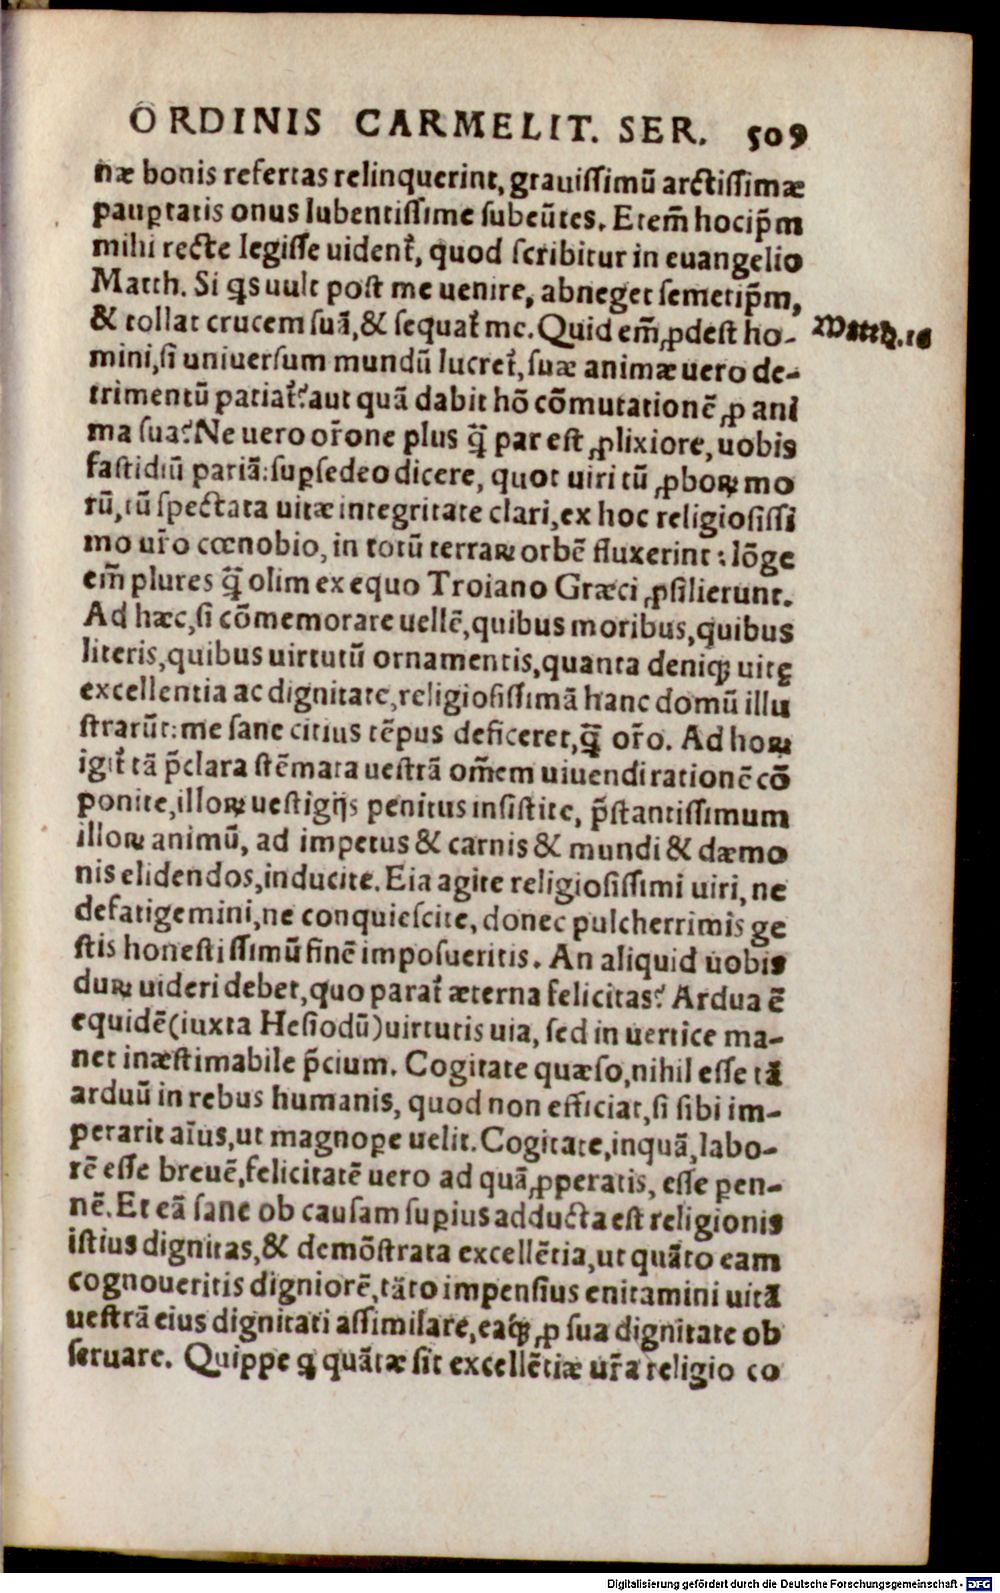 ORDINIS CARMELIT. SER. 509
næ bonis refertas relinquerint, grauiſſimũ arctiſſimæ
paup̲tatis onus lubentiſſime ſubeũtes. Etem̃ hocip̃m
mihi recte legiſſe uident᷑, quod ſcribitur in euangelio
Matth. Si qs uult poſt me uenire, abneget ſemetip̃m,
& tollat crucem ſuã, & ſequat᷑ me. Quid em̃ ꝓdeſt ho-
Matth. 16
mini, ſi uniuerſum mundũ lucret᷑, ſuæ animæ uero de-
trimentũ patiat᷑? aut quã dabit hõ cõmutationẽ ꝓ ani
ma ſua? Ne uero or̃one plus q̃ par eſt ꝓlixiore, uobis
faſtidiũ pariã: ſuꝑſedeo dicere, quot uiri tũ ꝓboꝝ mo
rũ, tũ ſpectata uitæ integritate clari, ex hoc religioſiſſi
mo ur̃o cœnobio, in totũ terraꝝ orbẽ fluxerint: lõge
em̃ plures q̃ olim ex equo Troiano Græci ꝓſilierunt.
Ad hæc, ſi cõmemorare uellẽ, quibus moribus, quibus
literis, quibus uirtutũ ornamentis, quanta deniqꝫ uitę
excellentia ac dignitate, religioſiſſimã hanc domũ illu
ſtrarũt: me ſane citius tẽpus deficeret, q̃ or̃o. Ad hoꝝ
igit᷑ tã p̃clara ſtẽmata ueſtrã om̃em uiuendi rationẽ cõ
ponite, illoꝝ ueſtigijs penitus inſiſtite, p̃ſtantiſſimum
illoꝝ animũ, ad impetus & carnis & mundi & dæmo
nis elidendos, inducite. Eia agite religioſiſſimi uiri, ne
defatigemini, ne conquieſcite, donec pulcherrimis ge
ſtis honeſtiſſimũ finẽ impoſueritis. An aliquid uobis
duꝝ uideri debet, quo parat᷑ æterna felicitas? Ardua ẽ
equidẽ (iuxta Heſiodũ) uirtutis uia, ſed in uertice ma-
net inæſtimabile p̃cium. Cogitate quæſo, nihil eſſe tã
arduũ in rebus humanis, quod non efficiat, ſi ſibi im-
perarit aĩus, ut magnoꝑe uelit. Cogitate, inquã, labo-
rẽ eſſe breuẽ, felicitatẽ uero ad quã ꝓperatis, eſſe ꝑen-
nẽ. Et eã ſane ob cauſam ſuꝑius adducta eſt religionis
iſtius dignitas, & demõſtrata excellẽtia, ut quãto eam
cognoueritis digniorẽ, tãto impenſius enitamini uitã
ueſtrã eius dignitati aſſimilare, eaqꝫ ꝓ ſua dignitate ob
ſeruare. Quippe q quãtæ ſit excellẽtiæ ur̃a religio co
Digitalisierung gefördert durch die Deutsche Forschungsgemeinschaft - DFG